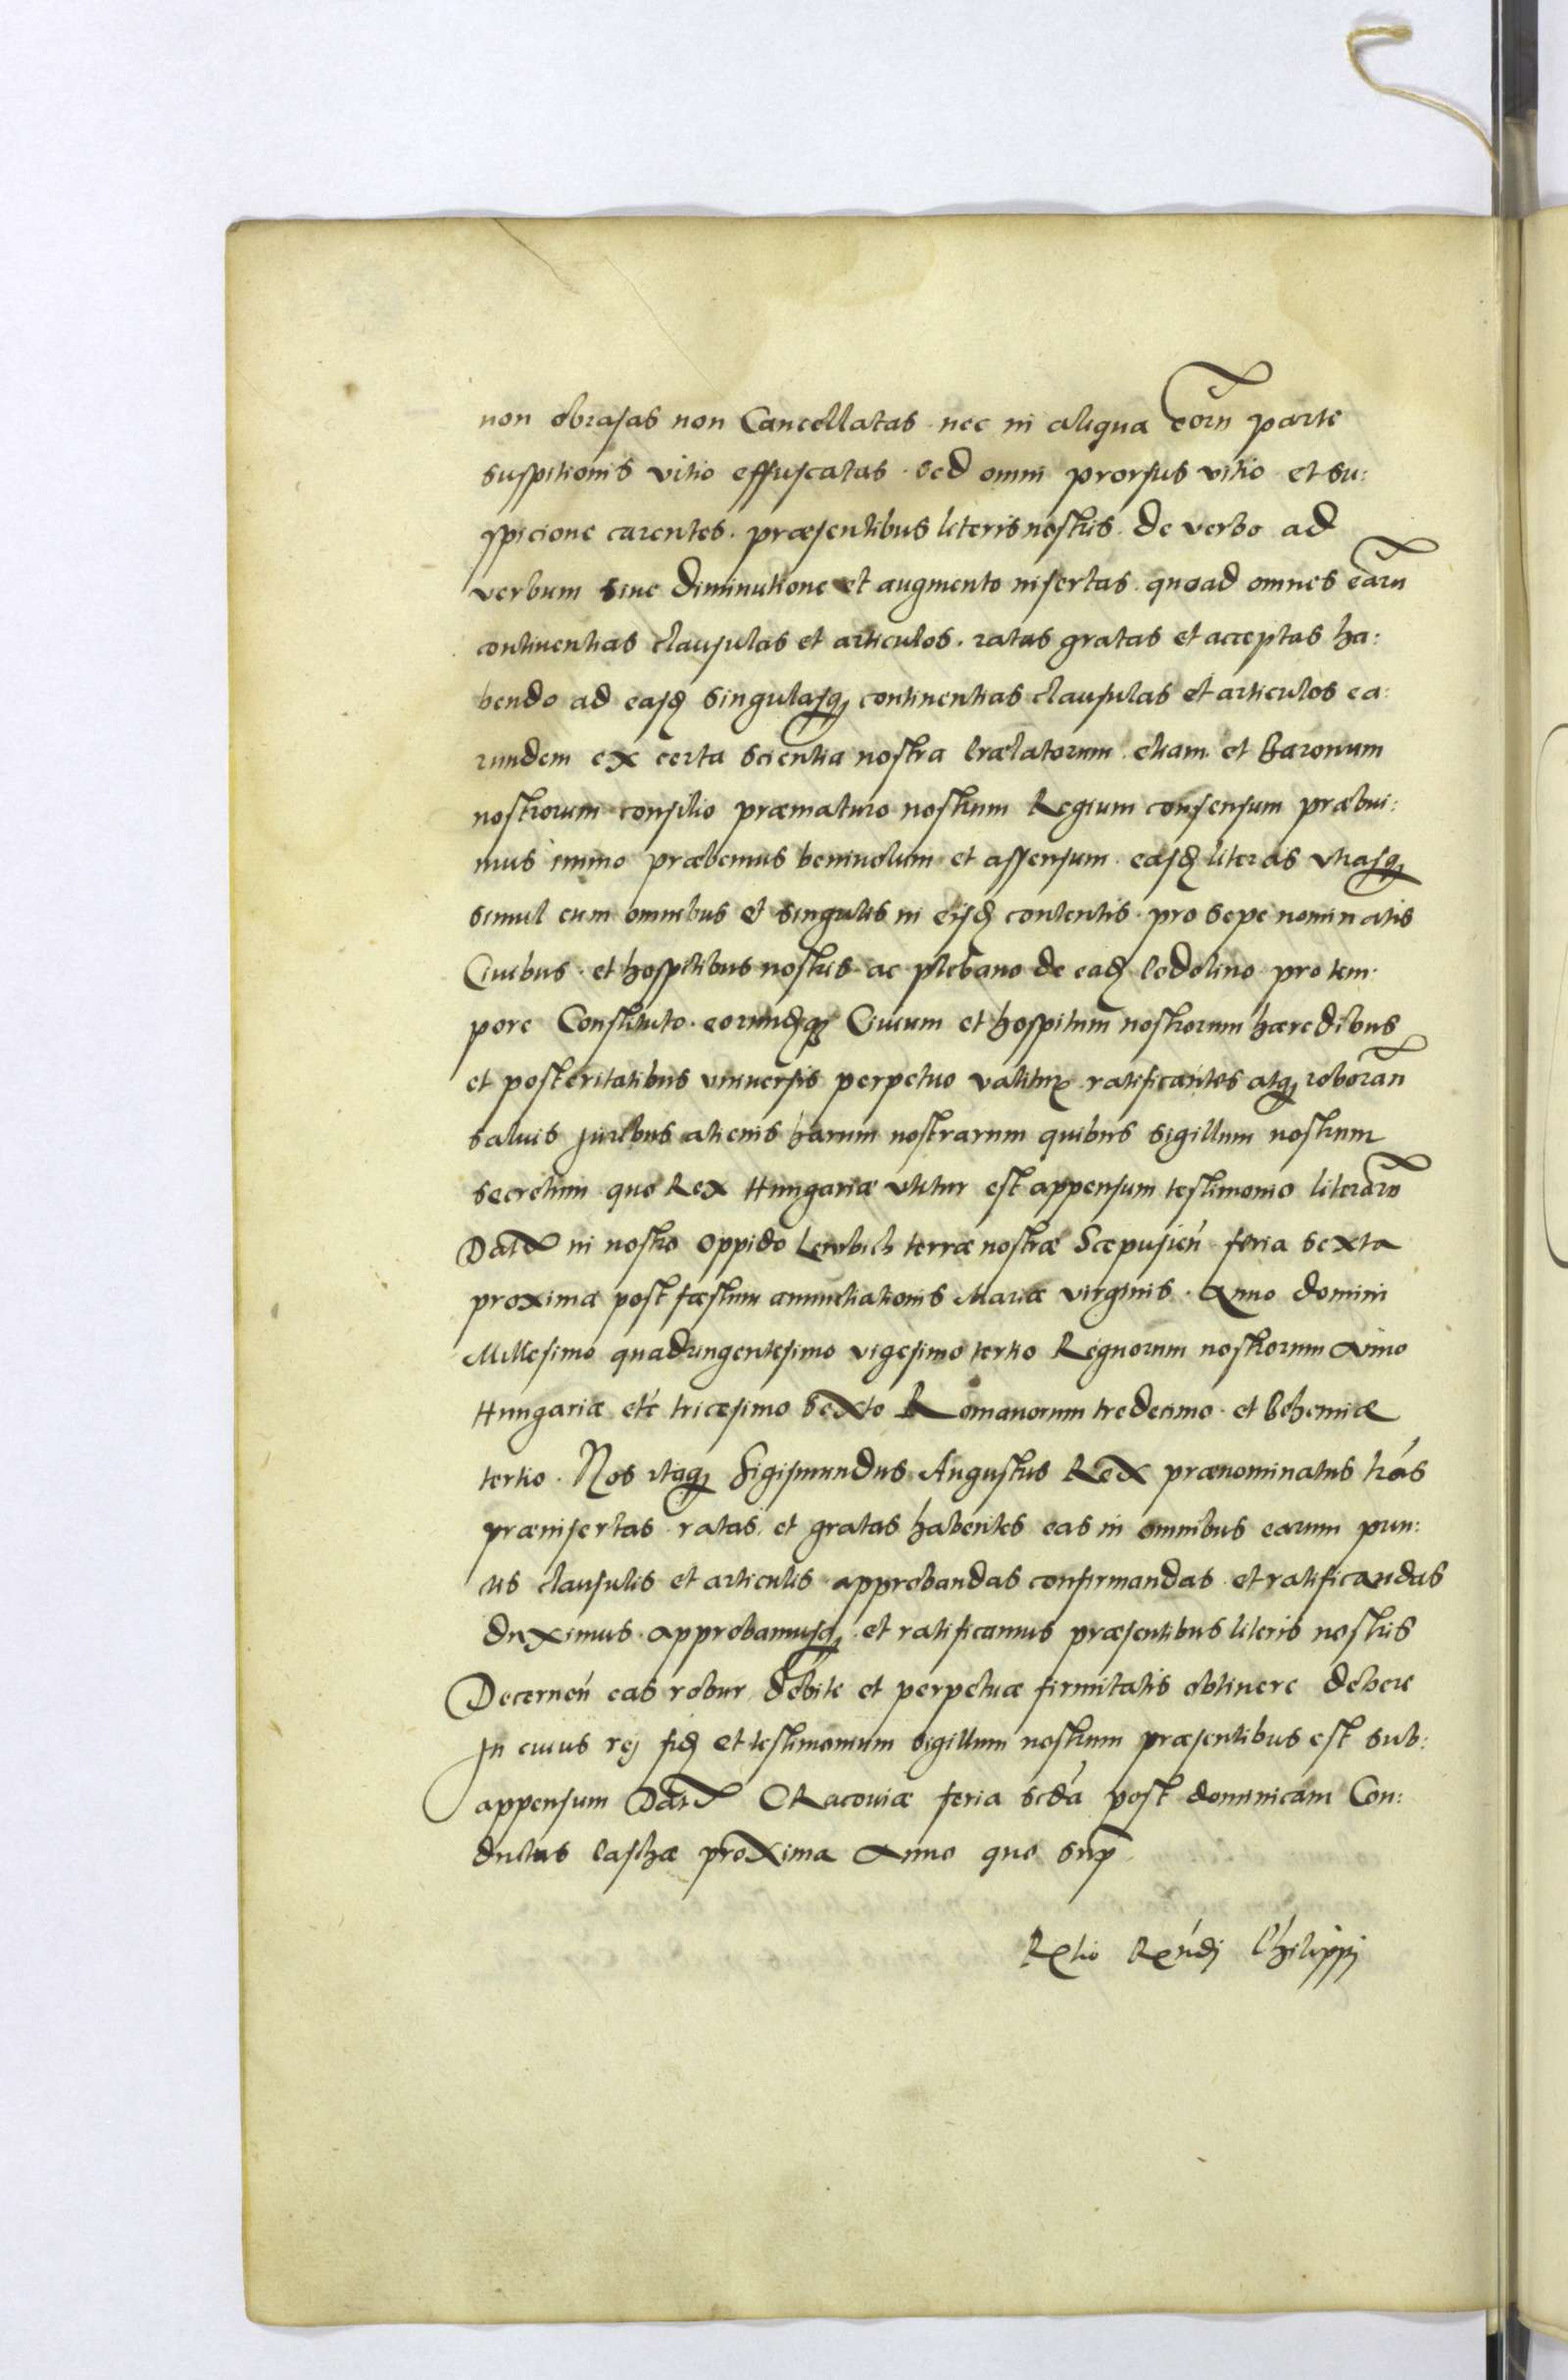 non obrasas non Cancellatas nec in aliqua eorũ parte
suspitionis vitio effuscatas. sed omni prorsus vitio et su:
spicione carentes. præsentibus literis nostris de verbo ad
verbum sine diminutione et augmento insertas quoad omnes earũ
continentias clausulas et articulos. ratas gratas et acceptas ha:
bendo ad easd singulasq continentias clausulas et articulos ea:
rundem ex certa scientia nostra Prælatorum etiam et Baronum
nostrorum consilio præmaturo nostrum Regium consensum præbui:
mus immo præbemus beniuolum et assensum easd literas vtrasq
simul cum omnibus et singulis in eisd contentis pro sepe nominatis
Ciuibus et hospitibus nostris ac plebano de ead Podolino pro tem:
pore Constituto. eorundq Ciuium et hospitum nostrorum hæredibus
et posteritatibus vniuersis perpetuo valitur ratificantes atq roboran̄
saluis juribus alienis harum nostrarum quibus sigillum nostrum
secretum quo Rex Hungariæ vtitur est appensum testimonio literarū
Dat in nostro oppido Lewbich terræ nostræ Scæpusień feria sexta
proxima post fæstum annunctiationis Mariæ virginis. Anno domini
Millesimo quadringentesimo vigesimo tertio Regnorum nostrorum Anno
Hungariæ etć tricæsimo sexto Romanorum tredecimo et Bohemiæ
tertio. Nos itaq Sigismundus Augustus Rex prænominatus lrás
præinsertas ratas et gratas habentes eas in omnibus earum pun:
tis clausulis et articulis approbandas confirmandas et ratificandas
duximus approbamusq et ratificamus præsentibus literis nostris
Decerneń eas robur debite et perpetuæ firmitatis obtinere debere
In cuius rej fid et testimonium sigillum nostrum præsentibus est sub:
appensum Dat CRacouiæ feria scdá post dominicam Con:
ductus Paschæ proxima Anno quo sup
Relio Reńdj Philippj